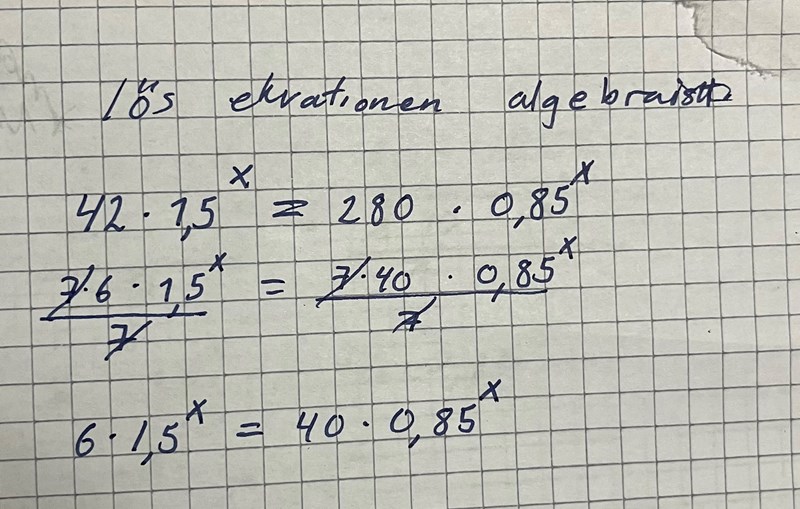 lös ekvationen algebraiskt
42 · 1,5^x = 280 · 0,85^x
7·6 · 1,5^x = 7·40 · 0,85^x
7 7
6 · 1,5^x = 40 · 0,85^x